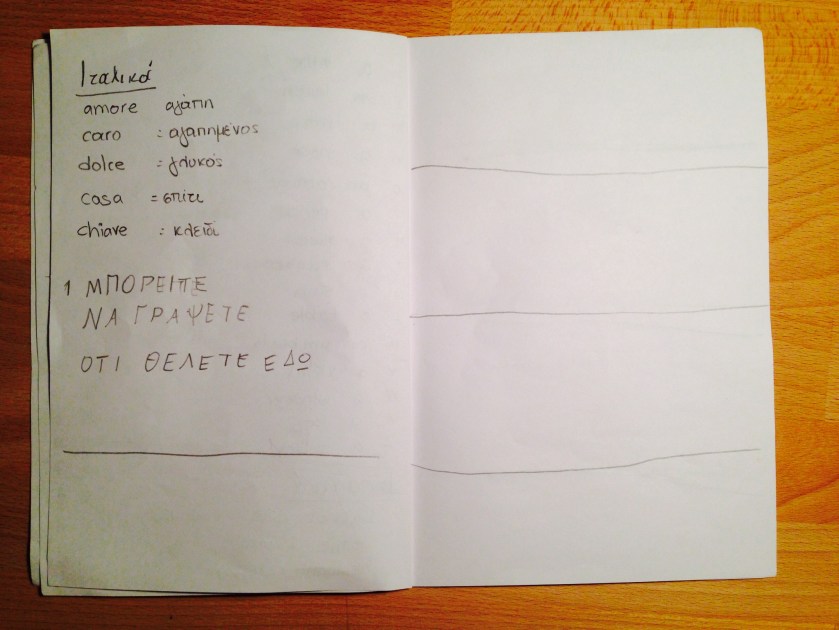 Ιταλικά
amore αγάπη
caro : αγαπημένος
dolce = γλυκός
casa = σπίτι
chiave : κλειδι
1 ΜΠΟΡΕΙΤΕ
ΝΑ ΓΡΑΨΕΤΕ
ΟΤΙ ΘΕΛΕΤΕ ΕΔΩ